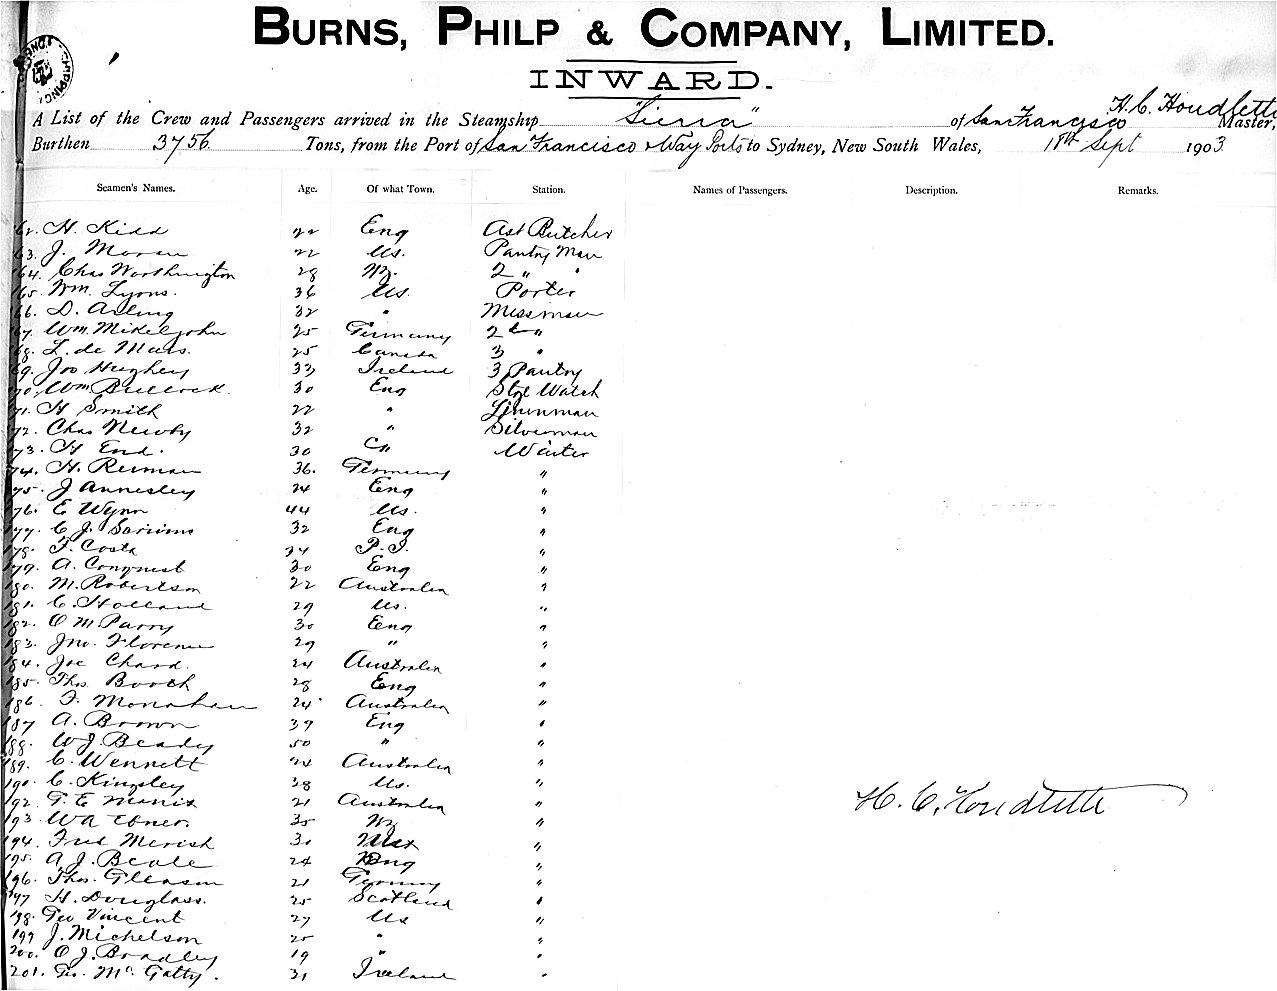 BURNS, PHILP & COMPANY, LIMITED.
INWARD.
H. C. Houdlette
A List of the Crew and Passengers arrived in the Steamship "Sierra" of San Francisco Master,
Burthen 3756 Tons, from the Port of San Francisco & Way Ports to Sydney, New South Wales, 18th Sept 1903
Seamen's Names. Age. Of what Town. Station. Names of Passengers. Description. Remarks.
62. H. Kidd 22 Eng Ast Butcher
63. J. Moran 22 Us. Pantry Man
164. Chas Worthington 28 2 " "
165. Wm. Lyons. 36 Us. Porter
66. D. Asling 32 " Messman
67. Wm. Mikeljohn 25 Germany 2 "
68. L. de Mars. 25 Canada 3 "
69. Jos Hughey 33 Ireland 3 Pantry
70. Wm. Bullock. 30 Eng Stge Watch
71. H Smith 22 " Linenman
72. Chas Newby 32 " Silverman
73. H End. 30 Waiter
74. H. Reiman 36. Germany "
75. J Annesley 24 Eng "
76. E Wynn 44 Us. "
177. C. J. 32 Eng "
178. F. Costa 34 P.I. "
179. A. Conquest 30 Eng "
180. M. Robertson 22 Australia "
181. C. Holland 29 Us. "
182. O M Parry 30 Eng "
183. Jno. Florence 29 " "
184. Joe Chard. 24 Australia "
185. Thos Booth 28 Eng "
186. F. Monahan 24 Australia "
187 A. Brown 39 Eng "
188. W J. Beady 50 " "
189. C. Wennett 24 Australia "
190. C. Kingsley 38 Us. "
192. T. E Manix 21 Australia "
193. W A Ebner. 35 "
194. Fred Merish 30 "
195. A. J. Beale 24 Eng "
196. Thos. Gleason 21 Germany "
197 H. Douglass. 25 Scotland "
198. Geo Vincent 27 Us "
199 J. Michelson 25 " "
200. O J. Bradley 19 " "
201. Geo. McGatty. 31 Ireland "
H. C. Houdlette